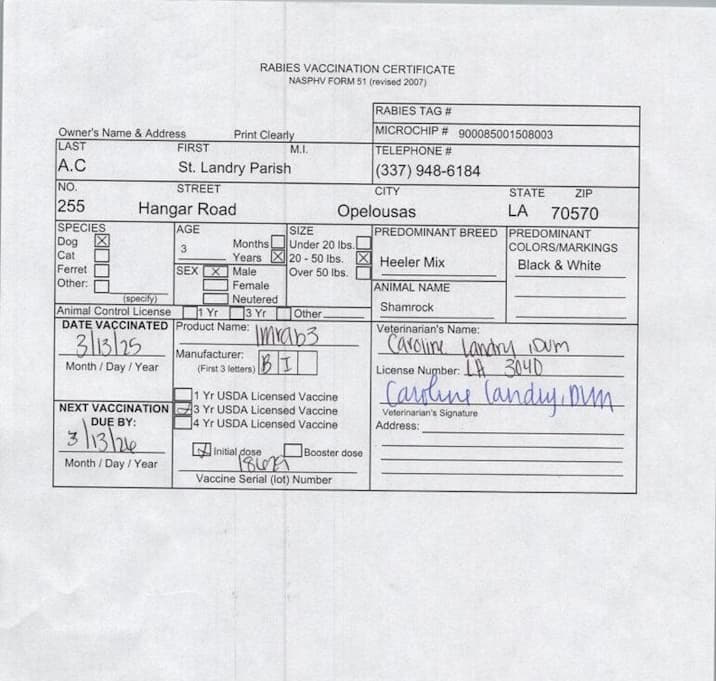 RABIES VACCINATION CERTIFICATE
NASPHV FORM 51 (revised 2007)
RABIES TAG #
Owner's Name & Address Print Clearly MICROCHIP # 900085001508003
LAST FIRST M.I. TELEPHONE #
A.C St. Landry Parish (337) 948-6184
NO. STREET CITY STATE ZIP
255 Hangar Road Opelousas LA 70570
SPECIES AGE SIZE PREDOMINANT BREED PREDOMINANT
Dog Months Under 20 lbs. COLORS/MARKINGS
Cat 3 Years 20 - 50 lbs. Heeler Mix Black & White
Ferret SEX X Male Over 50 lbs.
Other: Female ANIMAL NAME
(specify) Neutered Shamrock
Animal Control License 1 Yr 3 Yr Other
DATE VACCINATED Product Name: Imrab3 Veterinarian's Name:
3/13/25 Caroline Landry, DVM
Month / Day / Year Manufacturer: License Number: LA 3040
(First 3 letters) B I
1 Yr USDA Licensed Vaccine Caroline Landry, DVM
NEXT VACCINATION 3 Yr USDA Licensed Vaccine Veterinarian's Signature
DUE BY: 4 Yr USDA Licensed Vaccine Address:
3/13/26
Initial dose Booster dose
Month / Day / Year
Vaccine Serial (lot) Number